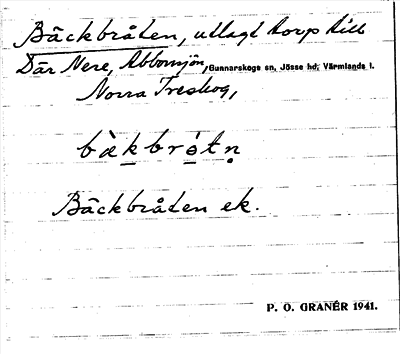 Bäckbråten, utlagt torp till
Där Nere, Abborrsjön, Gunnarskogs sn, Jösse hd, Värmlands l.
Norra Treskog,
bèkbrótṇ
Bäckbråten ek.
P. O. GRANÉR 1941.